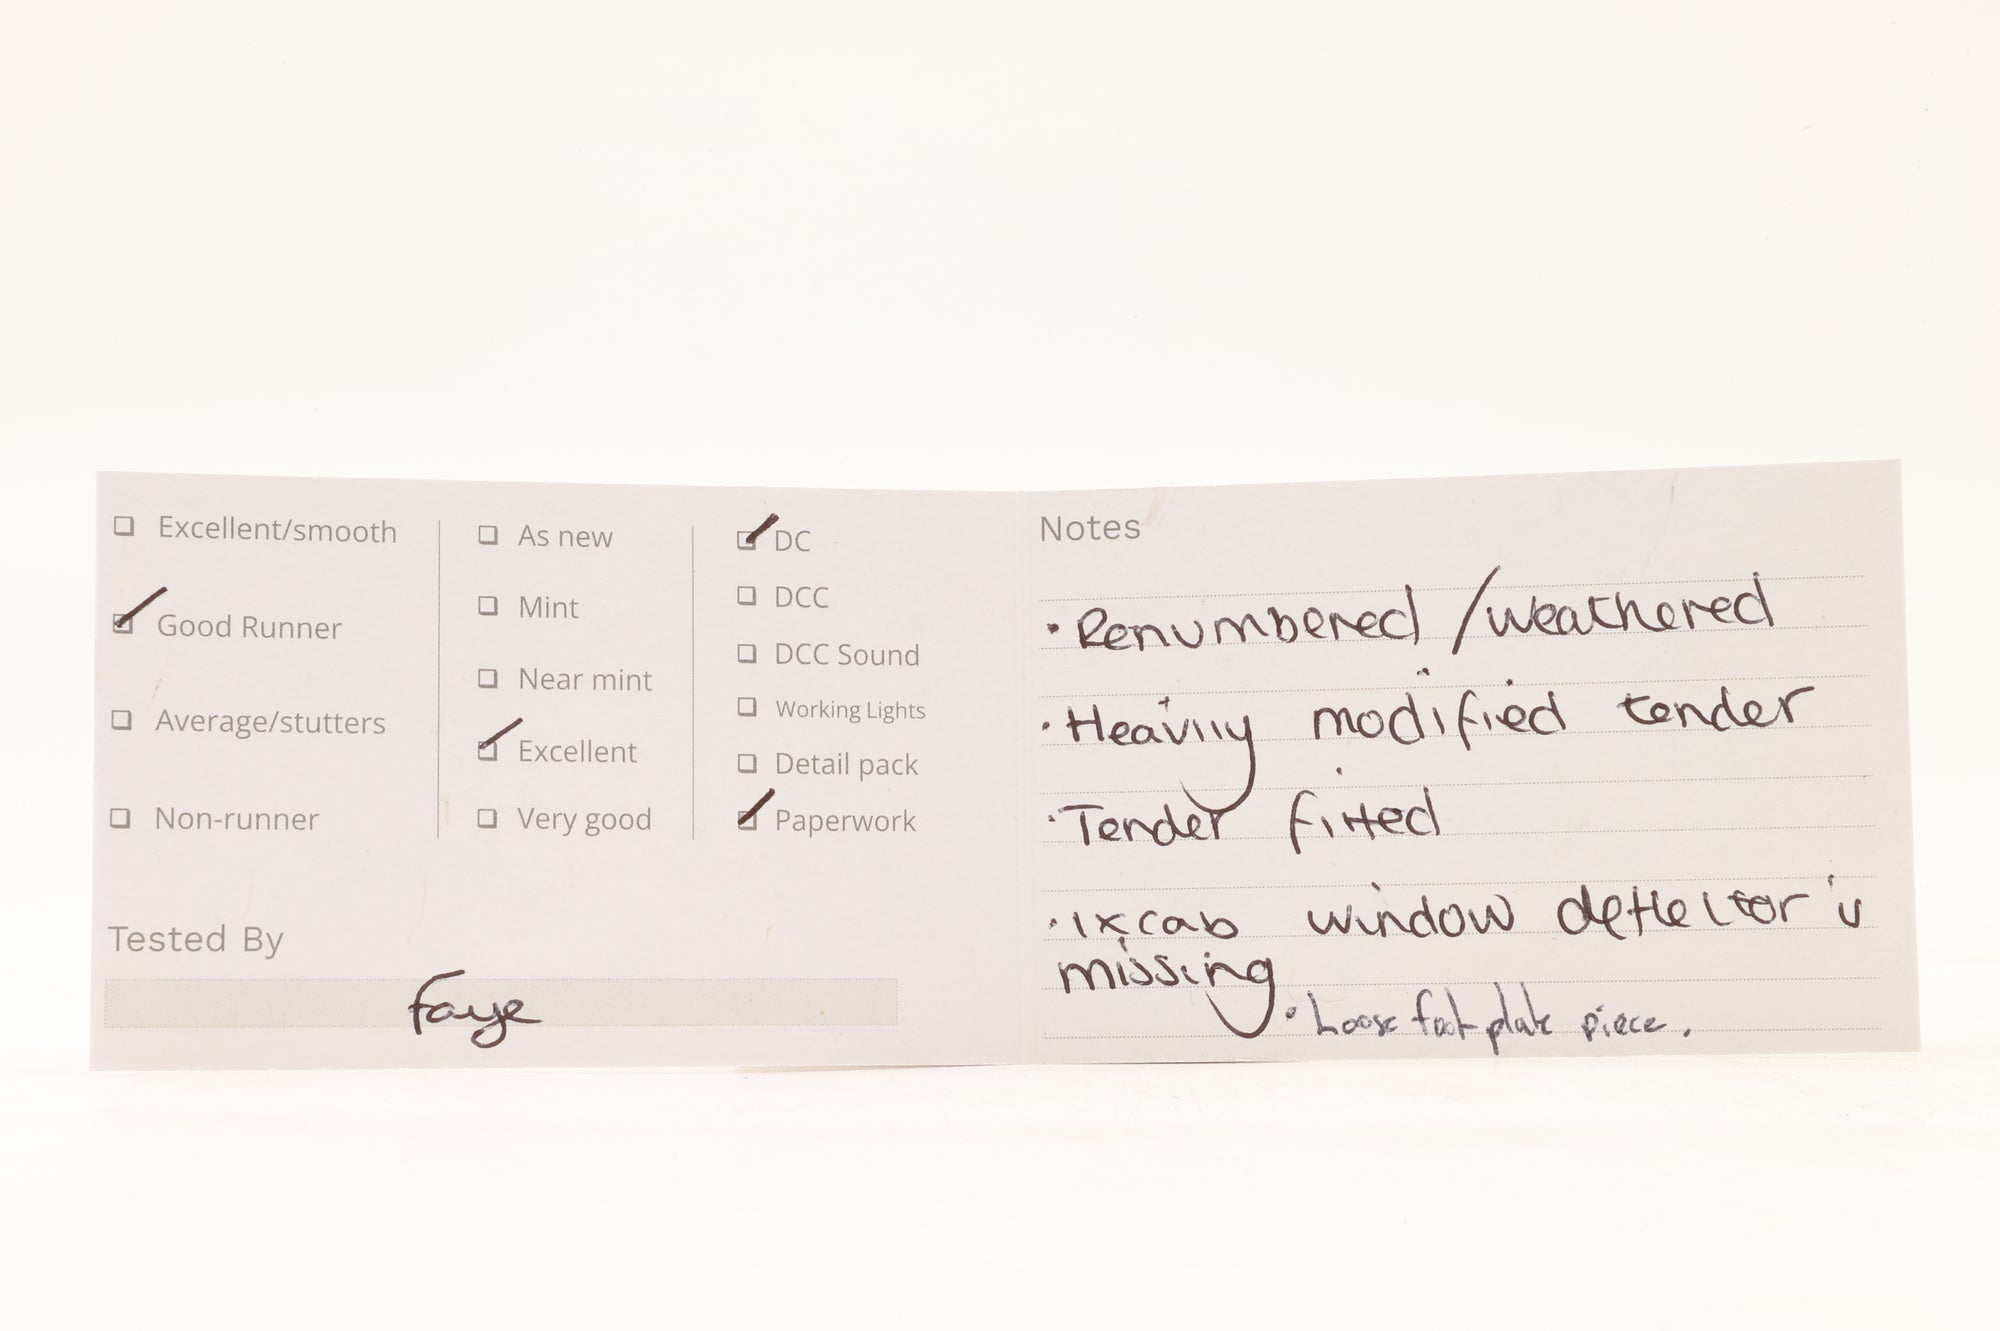 Excellent/smooth
Good Runner
Average/stutters
Non-runner
As new
Mint
Near mint
Excellent
Very good
DC
DCC
DCC Sound
Working Lights
Detail pack
Paperwork
Tested By
Faye
Notes
• Renumbered / weathered
• Heavily modified tender
• Tender fitted
• 1x cab window deflector is
missing
• Loose footplate piece.